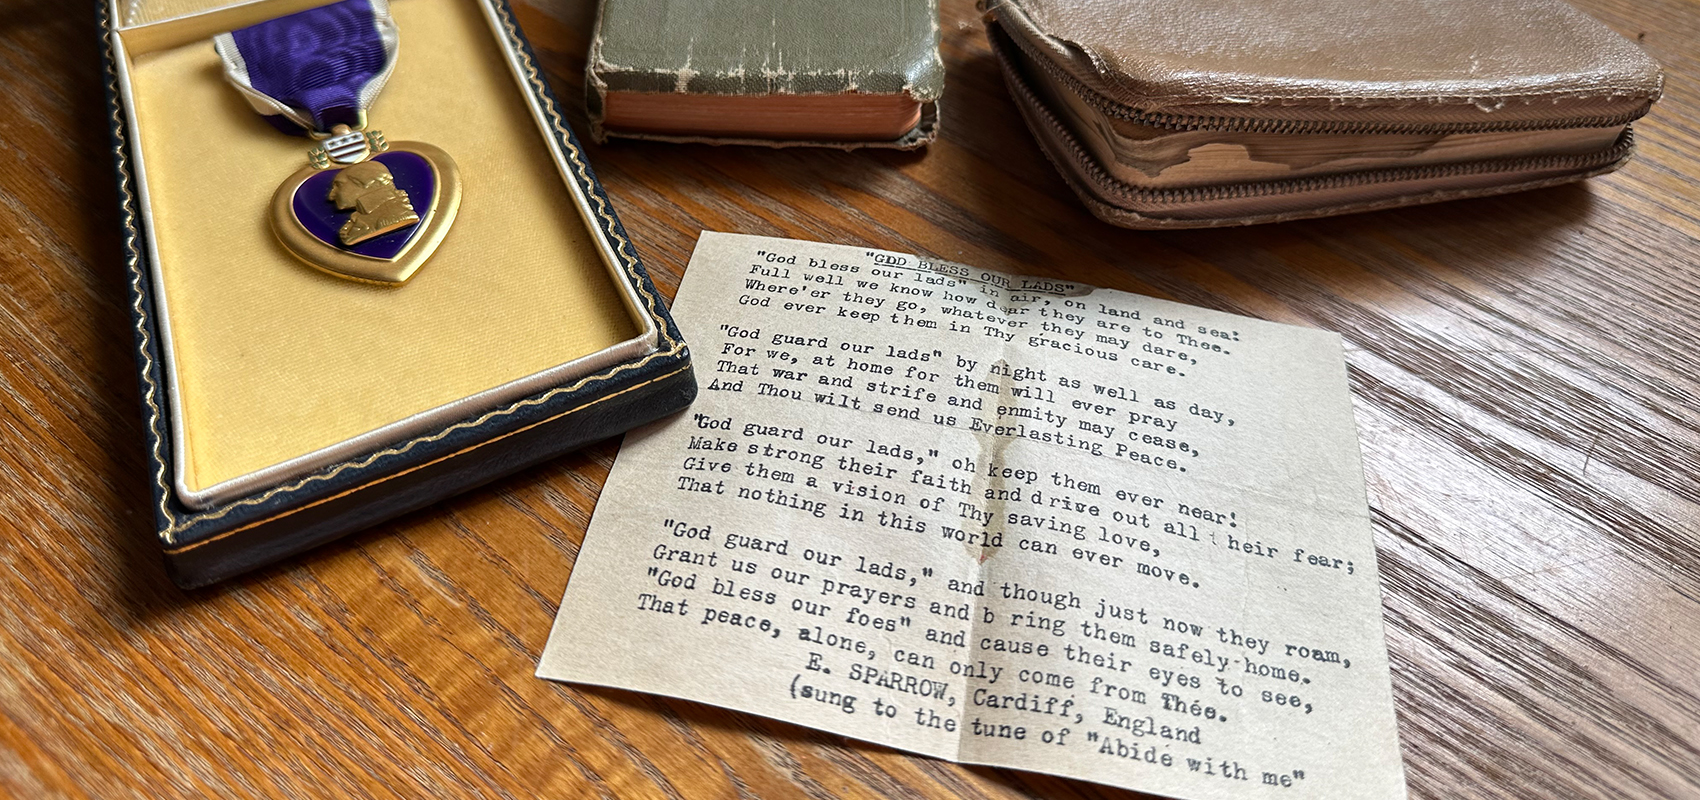 "GOD BLESS OUR LADS"
"God bless our lads" in air, on land and sea:
Full well we know how dear they are to Thee.
Where'er they go, whatever they may dare,
God ever keep them in Thy gracious care.
"God guard our lads" by night as well as day,
For we, at home for them will ever pray
That war and strife and enmity may cease,
And Thou wilt send us Everlasting Peace.
"God guard our lads," oh keep them ever near!
Make strong their faith and drive out all their fear;
Give them a vision of Thy saving love,
That nothing in this world can ever move.
"God guard our lads," and though just now they roam,
Grant us our prayers and b ring them safely home.
"God bless our foes" and cause their eyes to see,
That peace, alone, can only come from Thee.
E. SPARROW, Cardiff, England
(sung to the tune of "Abide with me"